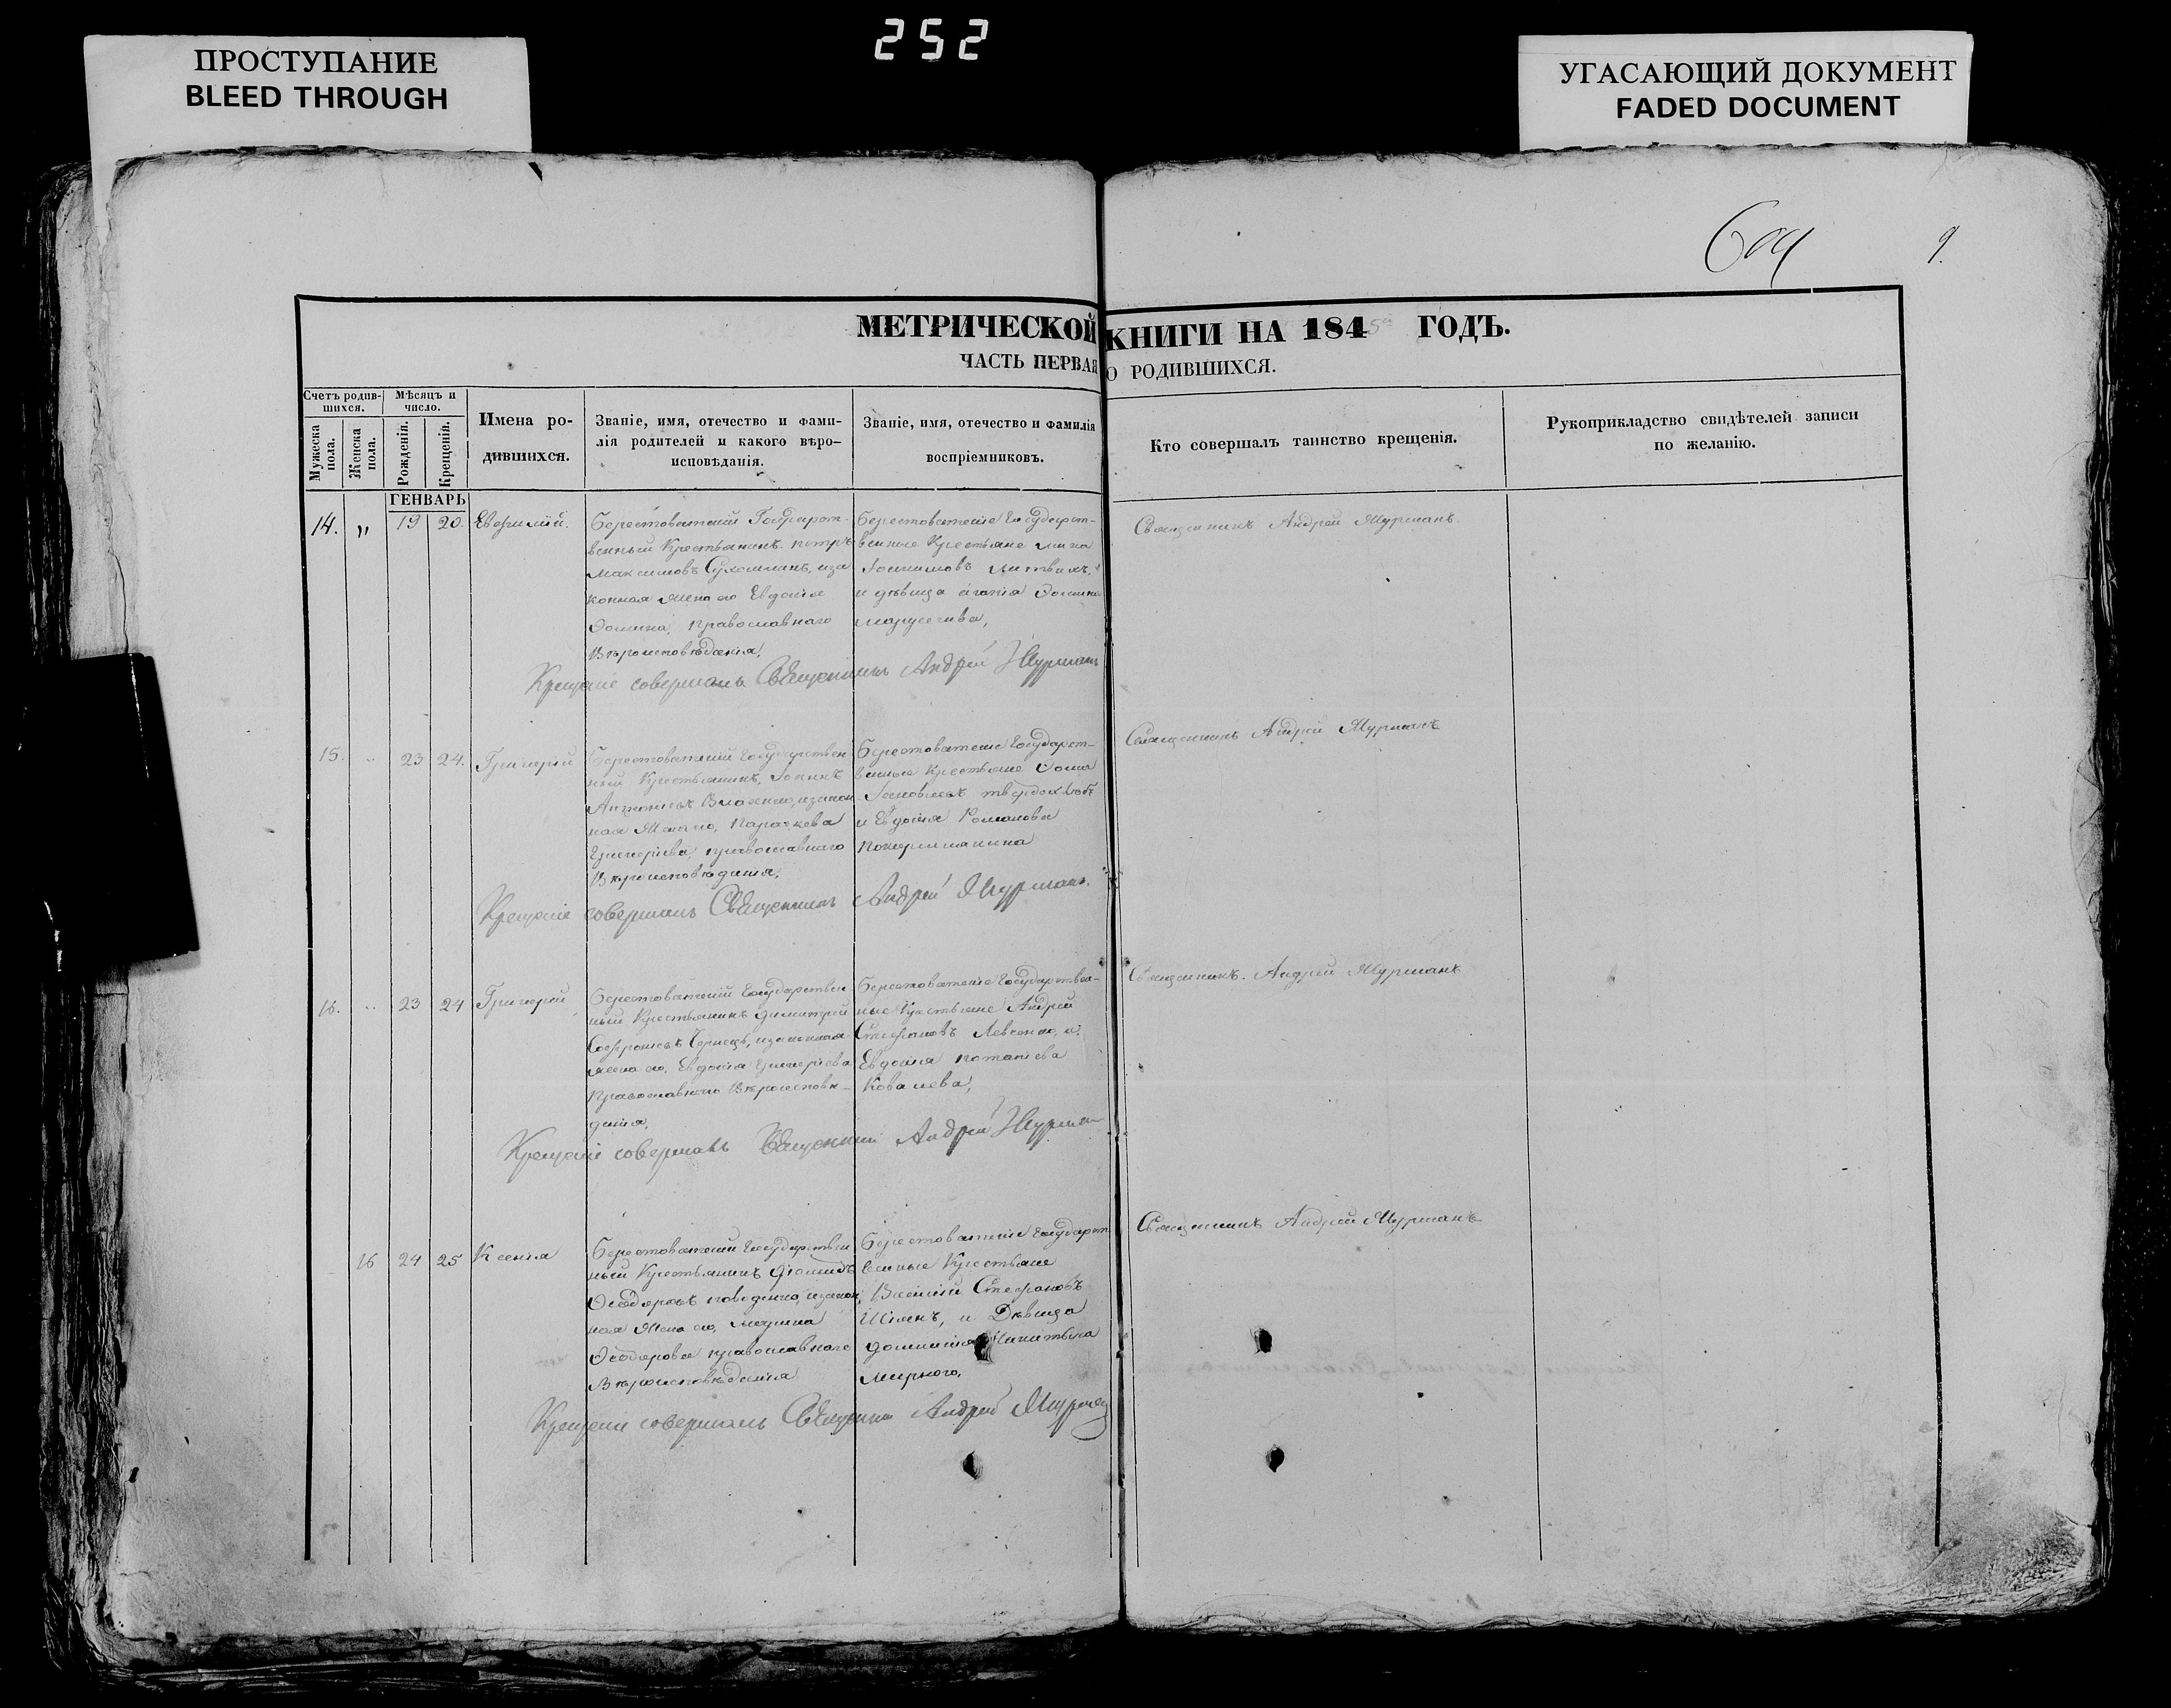 252
ПРОСТУПАНИЕ
BLEED THROUGH
УГАСАЮЩИЙ ДОКУМЕНТ
FADED DOCUMENT
9.
МЕТРИЧЕСКОЙ КНИГИ НА 1845 ГОДЪ.
ЧАСТЬ ПЕРВАЯ О РОДИВШИХСЯ.
Счетъ родив-
шихся.
Мужеска
пола.
Женска
пола.
Мѣсяцъ и
число.
Рожденія.
Крещенія.
Имена ро-
дившихся.
Званіе, имя, отечество и фами-
лія родителей и какого вѣро-
исповѣданія.
Званіе, имя, отечество и фамилія
воспріемниковъ.
Кто совершалъ таинство крещенія.
Рукоприкладство свидѣтелей записи
по желанію.
ГЕНВАРЬ
14. " 19 20. Евфимій.
Берестоватскій Государст-
венный Крестьянинъ Петръ
Максимовъ Сухомлинъ, и за
конная жена его Евдокія
Фомина, православнаго
Вѣроисповѣданія,
Берестоватскіе Государст-
венные Крестьяне
и дѣвица Агафія Фомина
Крещеніе совершалъ Священникъ Андрей Журманъ
Священникъ Андрей Журманъ.
15. " 23 24. Григорій
Берестоватскій Государствен
ный Крестьянинъ,
и закон
ная жена его, Параскева
Григоріева, православнаго
Вѣроисповѣданія,
Берестоватскіе Государст-
венные Крестьяне Фома
и Евдокія Романова
Крещеніе совершалъ Священникъ Андрей Журманъ.
Священникъ Андрей Журманъ
16. " 23 24 Григорій
Берестоватскій Государствен
ный Крестьянинъ Димитрій
и законная
жена его, Евдокія Григоріева
Православнаго Вѣроисповѣ-
данія,
Берестоватскіе Государствен-
ные Крестьяне Андрей
Стефановъ Левченко, и
Евдокія Потапіева
Ковалева,
Крещеніе совершалъ Священникъ Андрей Журманъ
Священникъ. Андрей Журманъ
16 24 25 Ксенія
Берестоватскій Государствен
ный Крестьянинъ Діомидъ
и закон
ная жена его,
Ѳеодорова православнаго
Вѣроисповѣданія
Берестоватскіе Государст
венные Крестьяне
Василій Стефановъ
и Дѣвица
Мирного,
Крещеніе совершалъ Священникъ Андрей Журманъ
Священникъ Андрей Журманъ